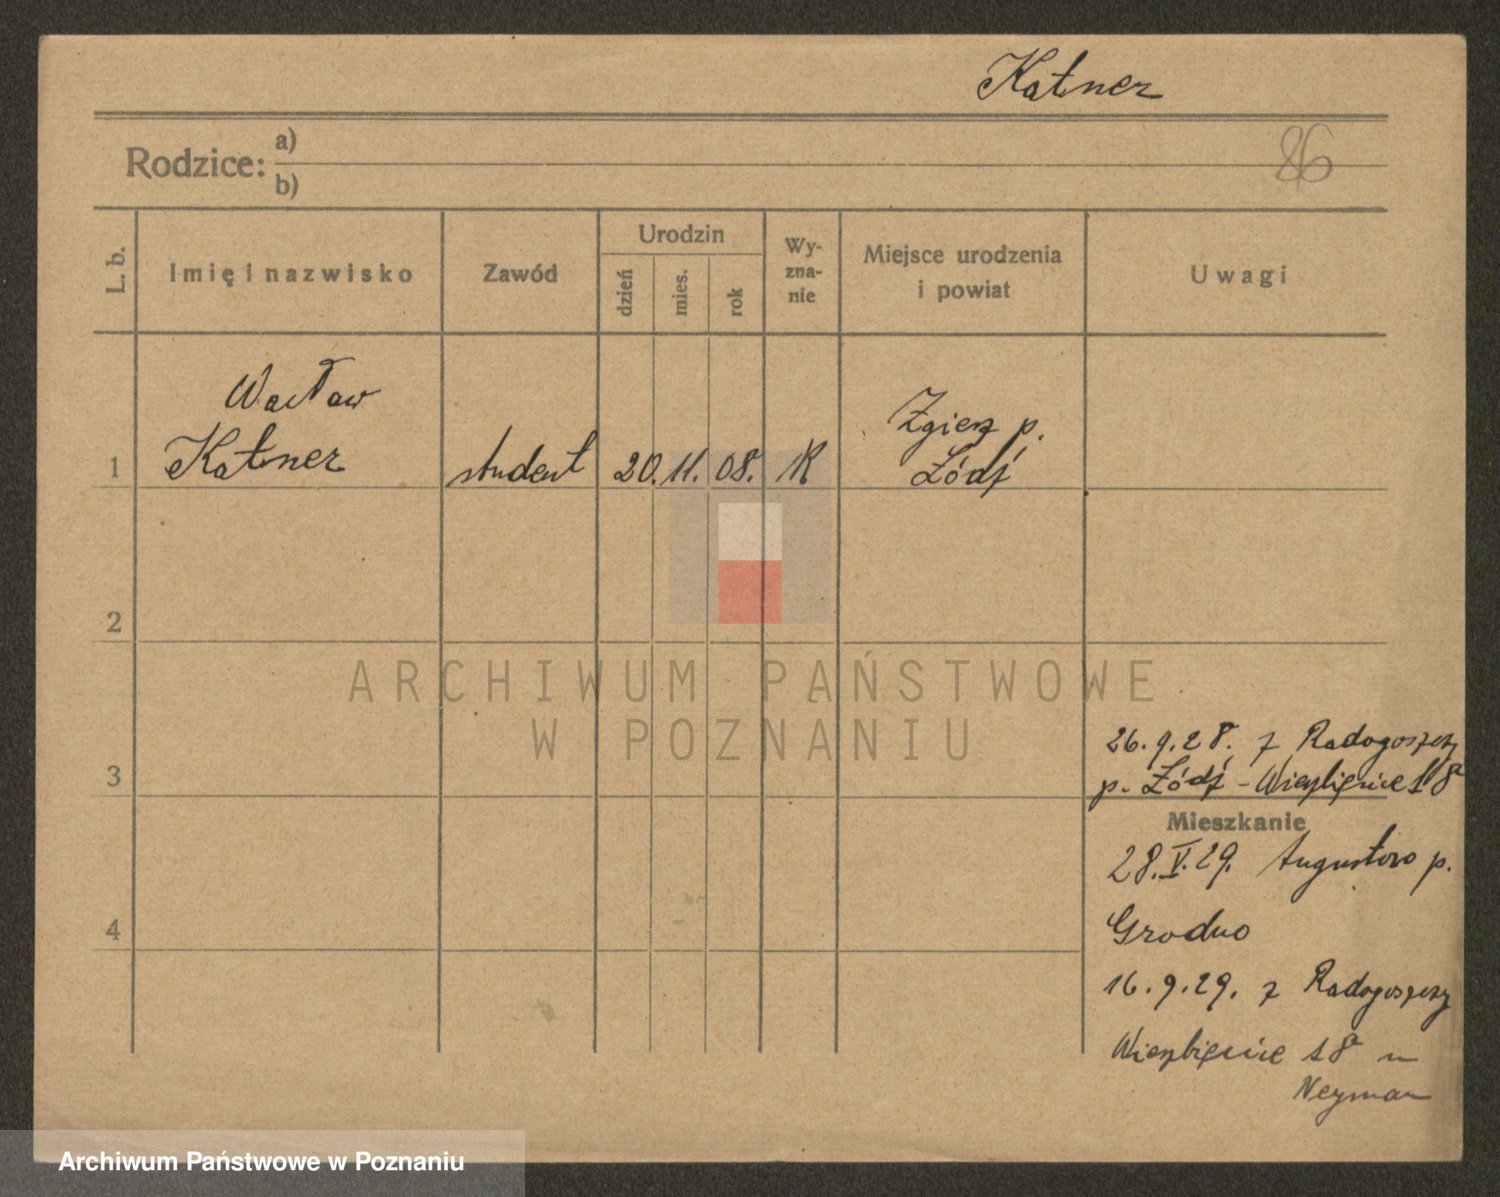 Katner
Rodzice: a)
b)
86
L. b.
Imię i nazwisko
Zawód
Urodzin
dzień
mies.
rok
Wy-
zna-
nie
Miejsce urodzenia
i powiat
Uwagi
1
Wacław
Katner
student
20. 11. 08.
R
Zgierz p.
Łódź
2
3
4
26.9.28. z Radogoszczy
p. Łódź - Wierzbięcice 18
Mieszkanie
28.V.29. Augustowo p.
Grodno
16.9.29. z Radogoszczy
Wierzbięcice 18 u
Neyman
ARCHIWUM PAŃSTWOWE
W POZNANIU
Archiwum Państwowe w Poznaniu